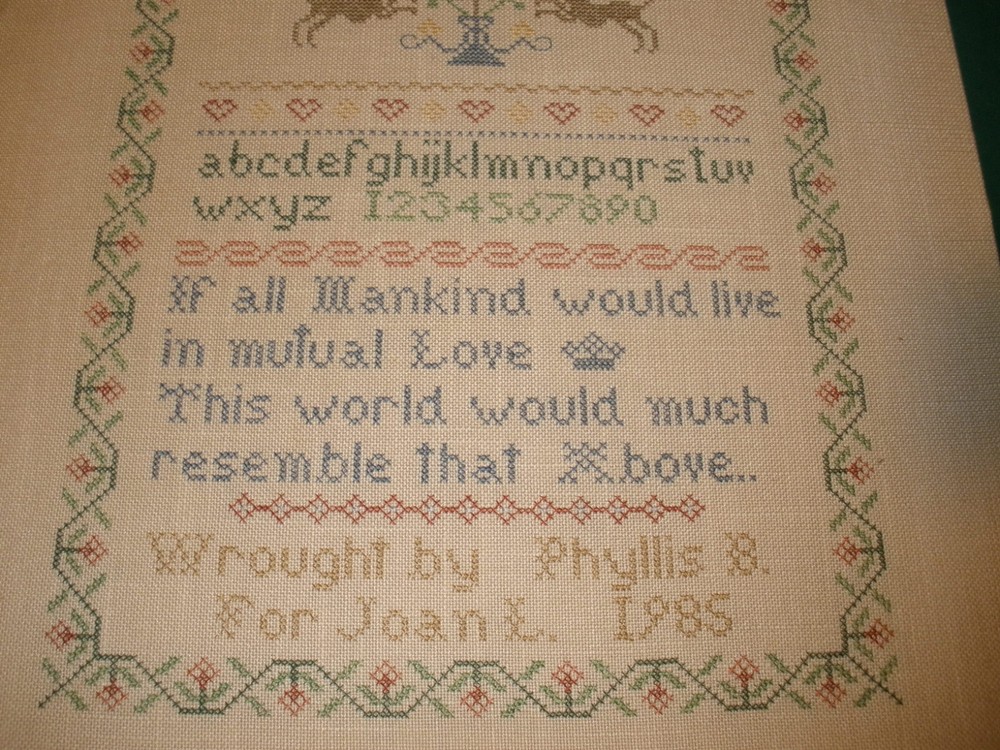 abcdefghijklmnopqrstuv
wxyz 1234567890
If all Mankind would live
in mutual Love
This world would much
resemble that Above..
Wrought by Phyllis B.
For Joan L. 1985